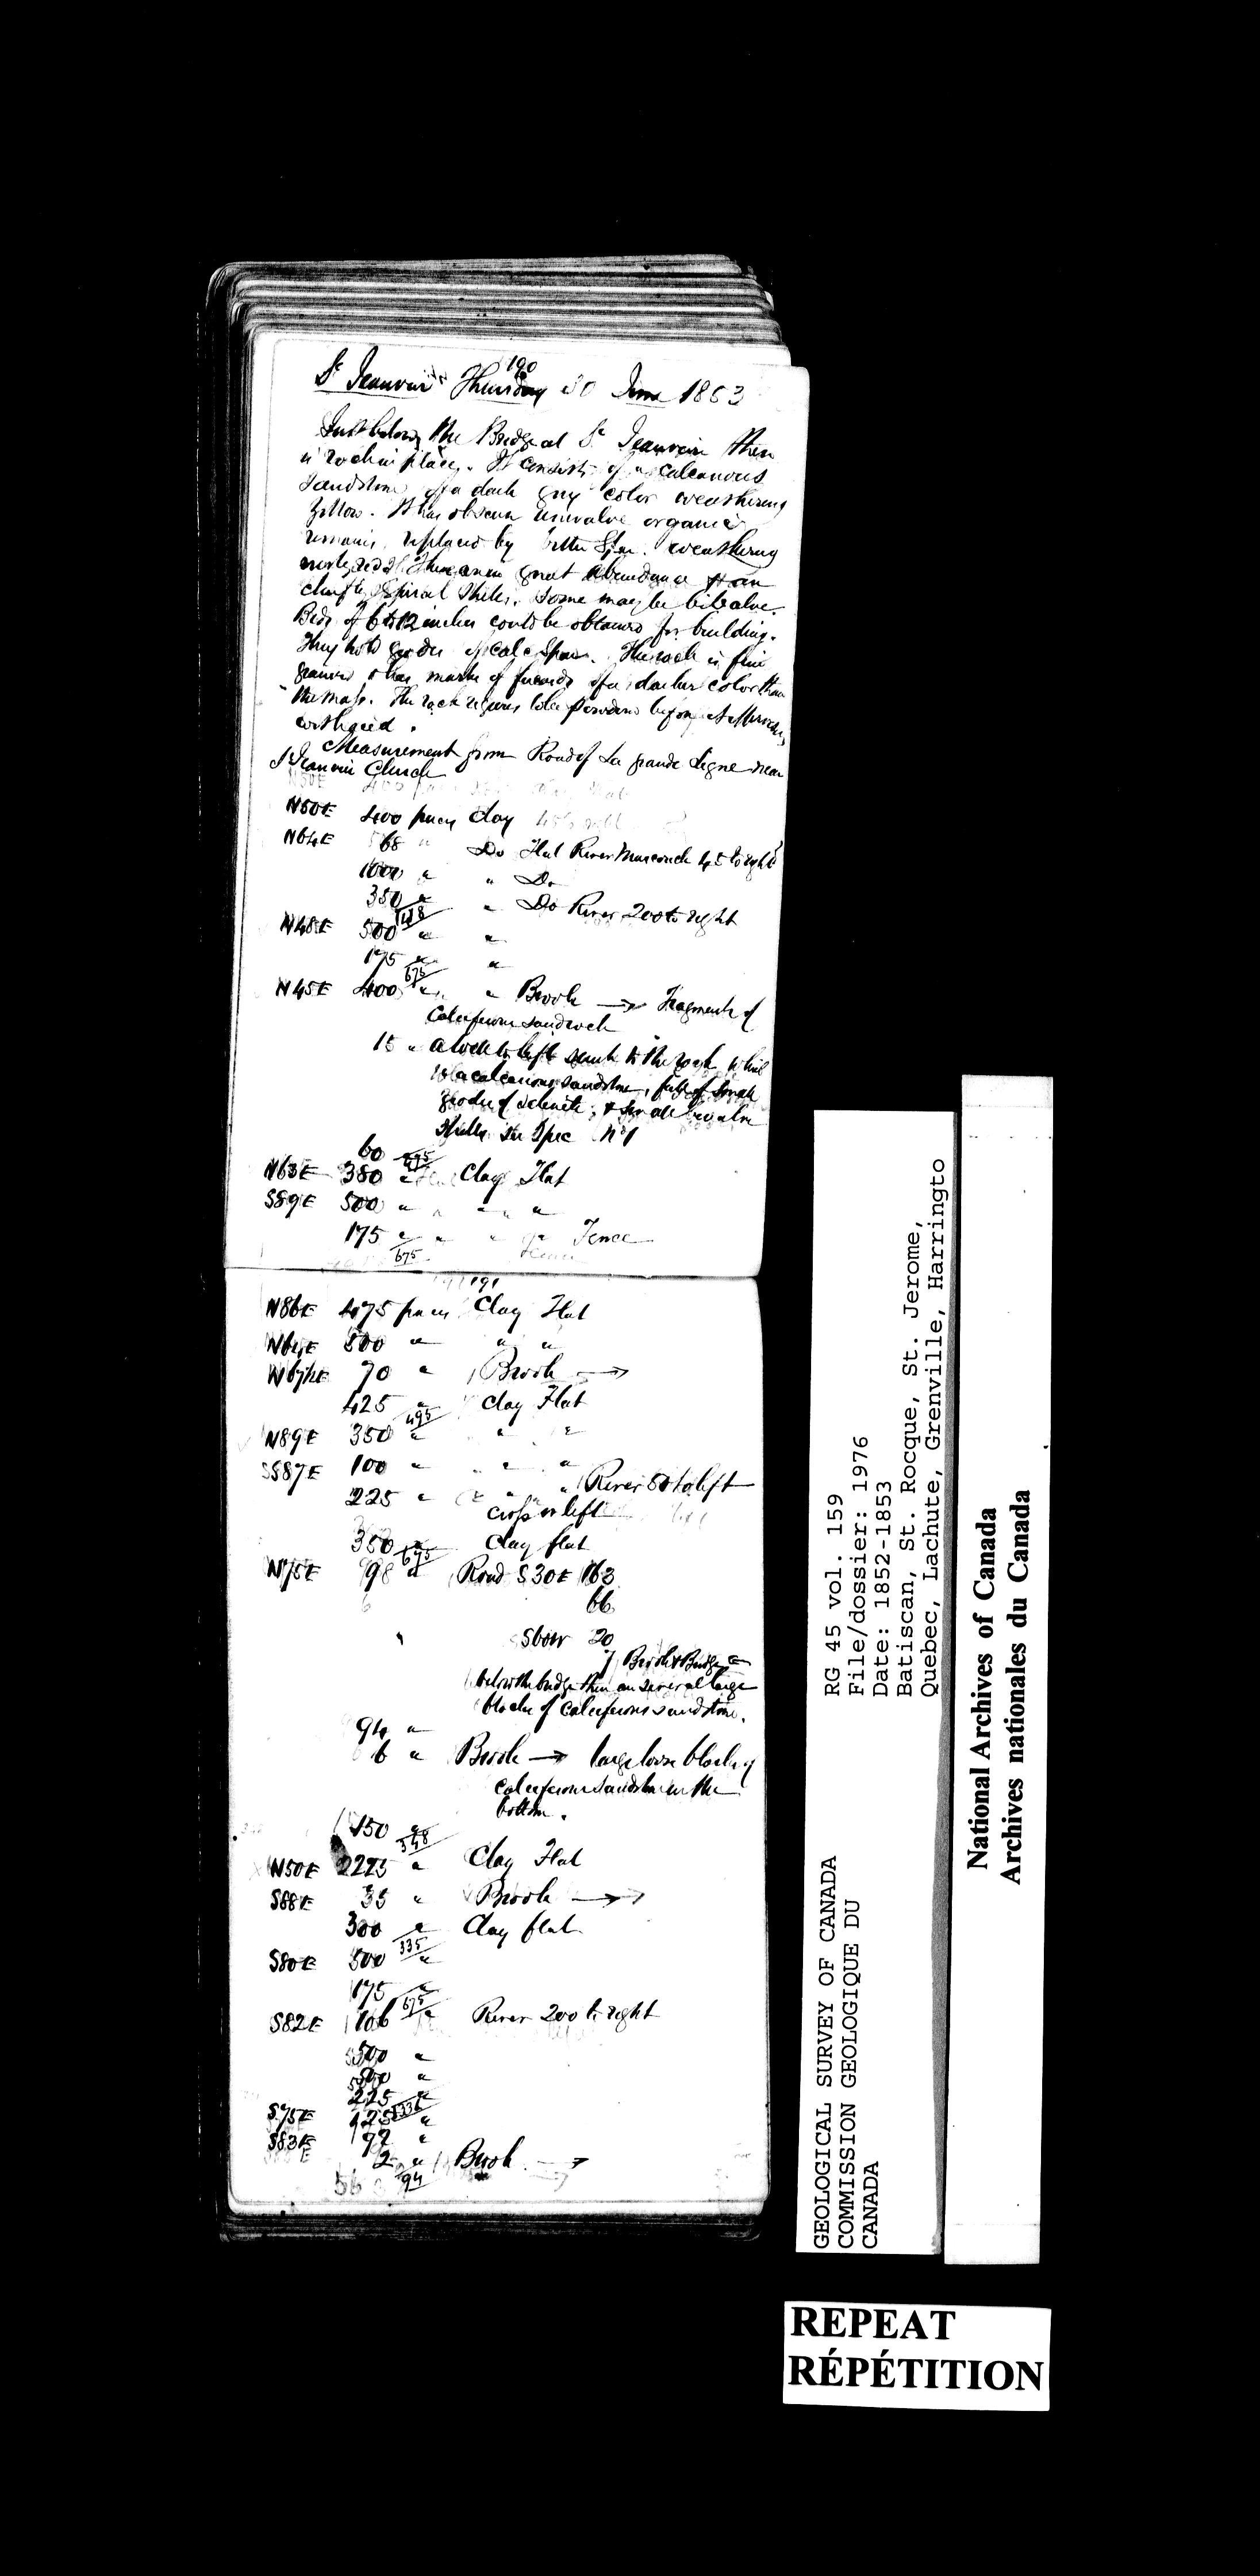 190
St Jeanvier Thursday 30 June 1853
Just below the Bridge at St Jeanvier there
is rock in place. It consists of a calcareous
sandstone of a dark grey color weathering
yellow. It has obscure univalve organic
remains, replaced by bitter spar weathering
red. These are in great abundance & are
chiefly spiral shells, some may be bivalve.
Beds of 6 to 12 inches could be obtained for building.
They hold geodes of calc spar. The rock is fine
grained & has marks of fucoids of a darker color than
the mass. The rock requires to be powdered before it effervesces
with acid.
Measurement from Road of La grande Ligne near
St Jeanvier Church
N50E 400 paces Clay
N64E 68 " Do Flat River Mascouch 45 to right
1000 " " Do
350 " " Do River 200 to right
1418
N48E 500 " "
175 " "
675
N45E 400 " " Brook → Fragments of
Calciferous sandrock
15 " a
is a calcareous sandstone, full of small
geodes of selenite, & small bivalve
shells. See Spec No 1
60
475
N63E 380 " Clay Flat
S89E 500 " " " "
175 " " " " Fence
675
191
N86E 475 paces Clay Flat
N64E 500 " " "
N67½E 70 " Brook →
425 " Clay Flat
495
N89E 350 " " "
S87E 100 " " " "
225 " " " " River 50 to left
cross on left
350 " Clay flat
675
N75E 98 " Road S30E 163
66
S60W 20
7 Brook & Bridge ←
below the bridge there are several large
blocks of calciferous sandstone.
94 "
6 " Brook → large loose blocks of
calciferous sandstone in the
bottom.
150 "
348
N50E 2225 " Clay Flat
S88E 35 " Brook →
300 " Clay flat
335
S80E 500 "
175 "
675
S82E 106 " River 200 to right
500 "
500 "
225 "
S75E 125 "
S83E 92 "
2 " Brook →
94
RG 45 vol. 159
File/dossier: 1976
Date: 1852-1853
Batiscan, St. Rocque, St. Jerome,
Quebec, Lachute, Grenville, Harringto
GEOLOGICAL SURVEY OF CANADA
COMMISSION GEOLOGIQUE DU
CANADA
National Archives of Canada
Archives nationales du Canada
REPEAT
RÉPÉTITION